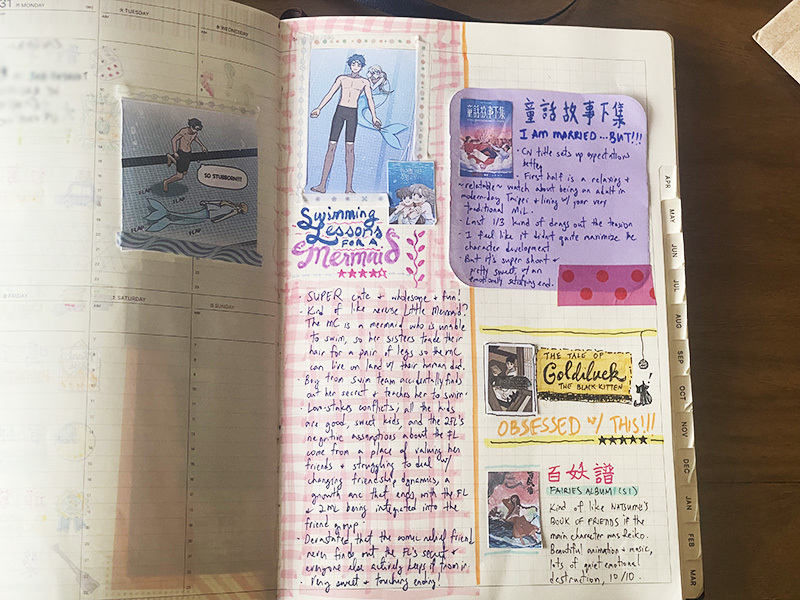 31 MONDAY
TUESDAY
WEDNESDAY
FRIDAY
SATURDAY
SUNDAY
SO STUBBORN!!!
FLAP
FLAP
FLAP
Swimming
Lessons
FOR A
Mermaid
★★★★☆
· SUPER cute + wholesome + fun!
· Kind of like reverse Little Mermaid?
The MC is a mermaid who is unable
to swim, so her sisters trade their
hair for a pair of legs so the MC
can live on land w/ their human dad.
· Boy from swim team accidentally finds
out her secret + teaches her to swim.
· Low-stakes conflicts; all the kids
are good, sweet kids, and the 2FL's
negative assumptions about the FL
come from a place of valuing her
friends + struggling to deal w/
changing friendship dynamics, a
growth arc that ends with the FL
+ 2ML being integrated into the
friend group.
· Devastated that the comic relief friend
never finds out the FL's secret +
everyone else actively keeps it from him
· Very sweet + touching ending!
童話故事下集
童話故事下集
I AM MARRIED...BUT!!!
· CN title sets up expectations
better
· First half is a relaxing +
~relatable~ watch about being an adult in
modern-day Taipei + living w/ your very
traditional MiL.
· Last 1/3 kind of drags out the tension
I feel like it didn't quite maximize the
character development
· But it's super short +
pretty sweet, w/ an
emotionally satisfying end.
THE TALE OF
Goldiluck
THE BLACK KITTEN
OBSESSED W/ THIS!!!
★★★★★
百妖譜
FAIRIES ALBUM (S1)
Kind of like NATSUME'S
BOOK OF FRIENDS if the
main character was Reiko.
Beautiful animation + music,
lots of quiet emotional
destruction, 10/10.
APR
MAY
JUN
JUL
AUG
SEP
OCT
NOV
DEC
JAN
FEB
MAR